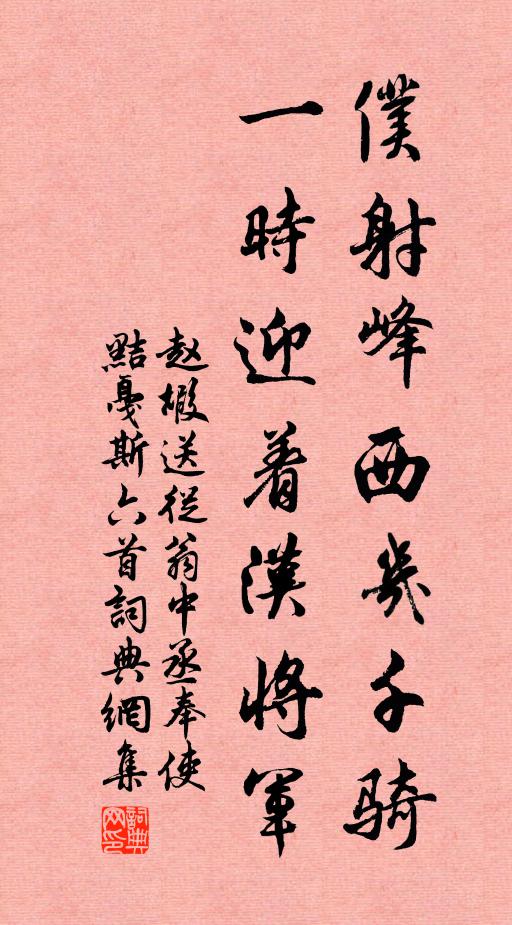 僕射峰西幾千騎
一時迎着漢將軍
赵嘏送從翁中丞奉使
黠戛斯六首詞典網集
詞典网印